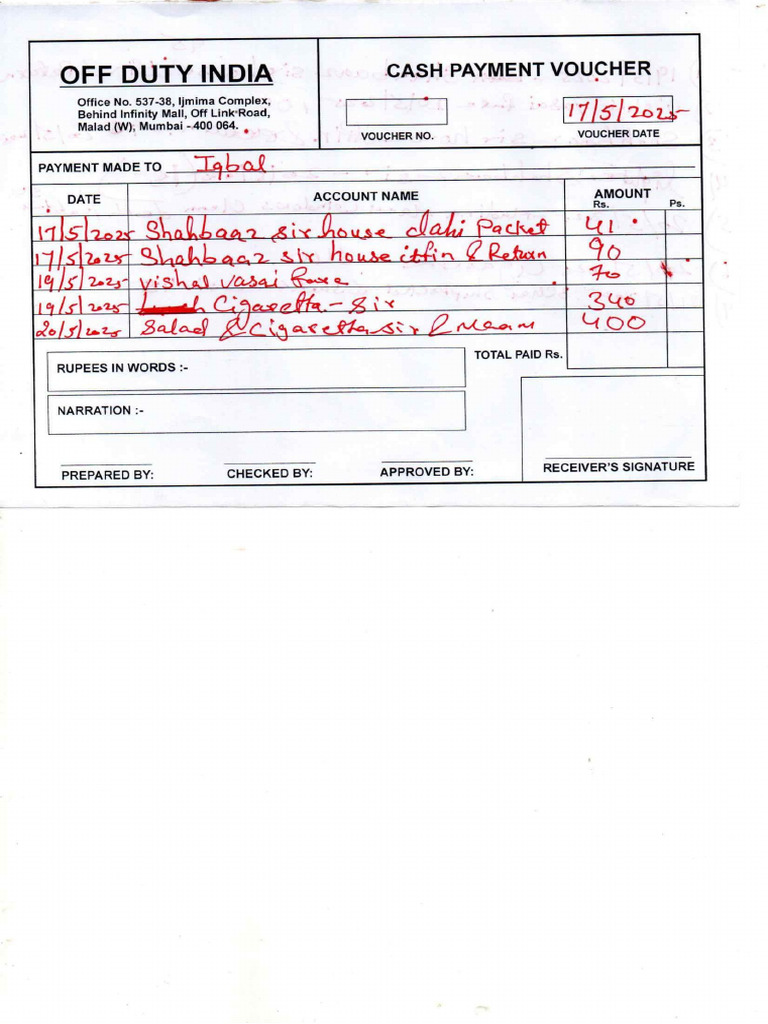 OFF DUTY INDIA
Office No. 537-38, Ijmima Complex,
Behind Infinity Mall, Off Link Road,
Malad (W), Mumbai - 400 064.
CASH PAYMENT VOUCHER
17/5/2025
VOUCHER NO. VOUCHER DATE
PAYMENT MADE TO Iqbal.
DATE ACCOUNT NAME AMOUNT
Rs. Ps.
17/5/2025 Shahbaaz sir house dahi Packet 41
17/5/2025 Shahbaaz sir house & Return 90
19/5/2025 vishal vasai 70
19/5/2025 Cigaretta - Sir 340
20/5/2025 Salad & Cigaretta sir & Maam 400
TOTAL PAID Rs.
RUPEES IN WORDS :-
NARRATION :-
PREPARED BY: CHECKED BY: APPROVED BY: RECEIVER'S SIGNATURE